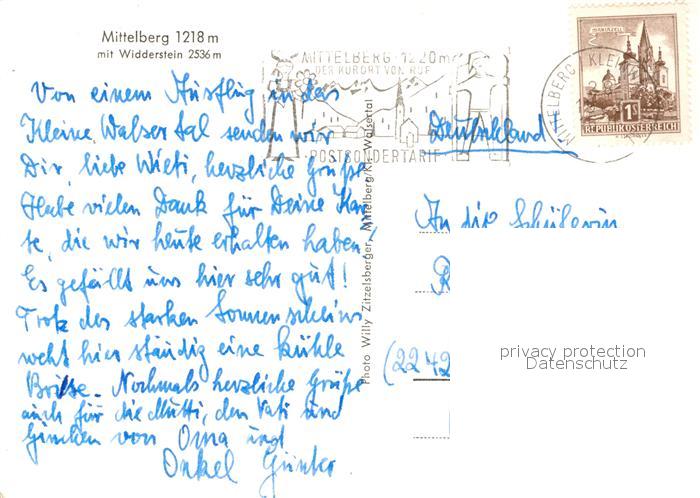 Mittelberg 1218 m
mit Widderstein 2536 m
Von einem Ausflug in das
Kleine Walsertal senden wir
Dir, liebe Wieti, herzliche Grüße
Habe vielen Dank für Deine Kar-
te, die wir heute erhalten haben!
Es gefällt uns hier sehr gut!
Trotz des starken Sonnenscheins
weht hier ständig eine kühle
Brise. Nochmals herzliche Grüße
auch für die Mutti, den Vati und
von Oma und
Onkel Günter
Photo Willy Zitzelsberger, Mittelberg/Kl. Walsertal
MITTELBERG · 1220m
DER KURORT VON RUF
POSTSONDERTARIF
MITTELBERG KLEIN
MARIAZELL
1S
REPUBLIK ÖSTERREICH
Deutschland!
An die Schülerin
R
(2242
privacy protection
Datenschutz